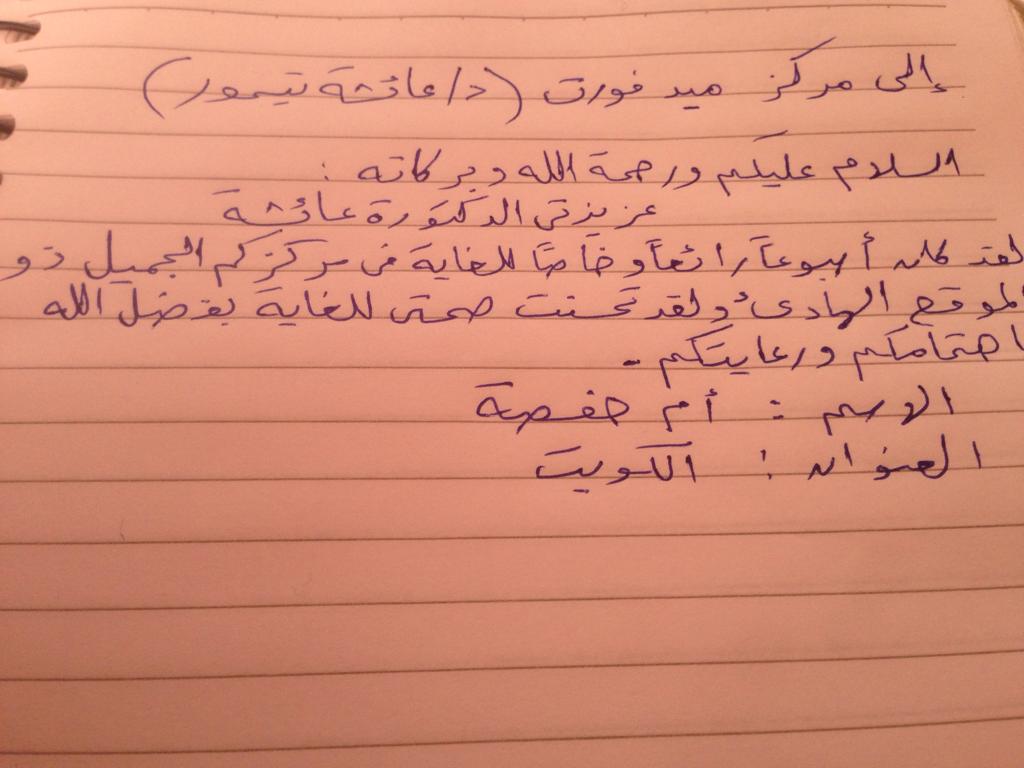 إلى مركز ميد فورت (د/عائشة تيمور)
السلام عليكم ورحمة الله وبركاته :
عزيزتي الدكتورة عائشة
لقد كان أسبوعاً رائعاً وخاصاً للغاية في مركزكم الجميل ذو
الموقع الهادئ ولقد تحسنت صحتي للغاية بفضل الله
اهتمامكم ورعايتكم .
الاسم : أم حفصة
العنوان : الكويت